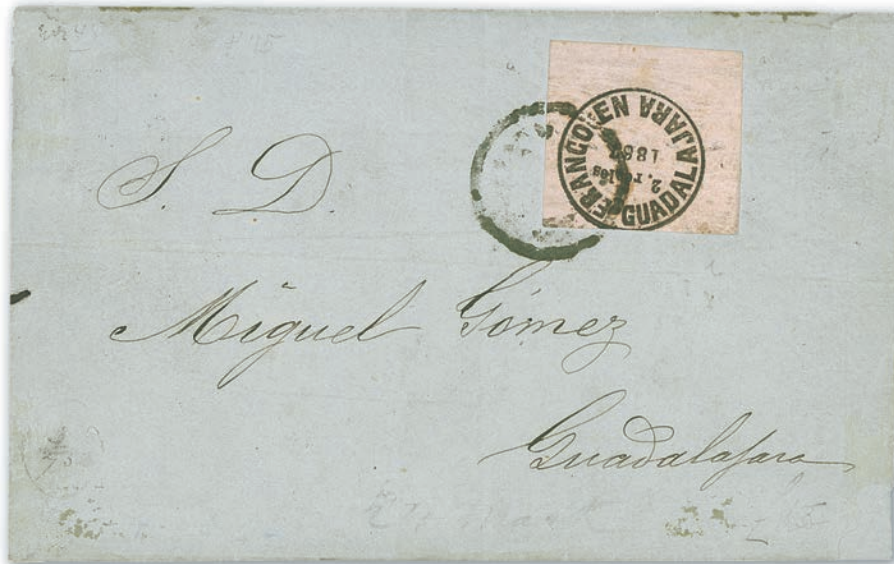 FRANCO EN GUADALAJARA
2. reales
S. D.
Miguel Gómez
Guadalajara